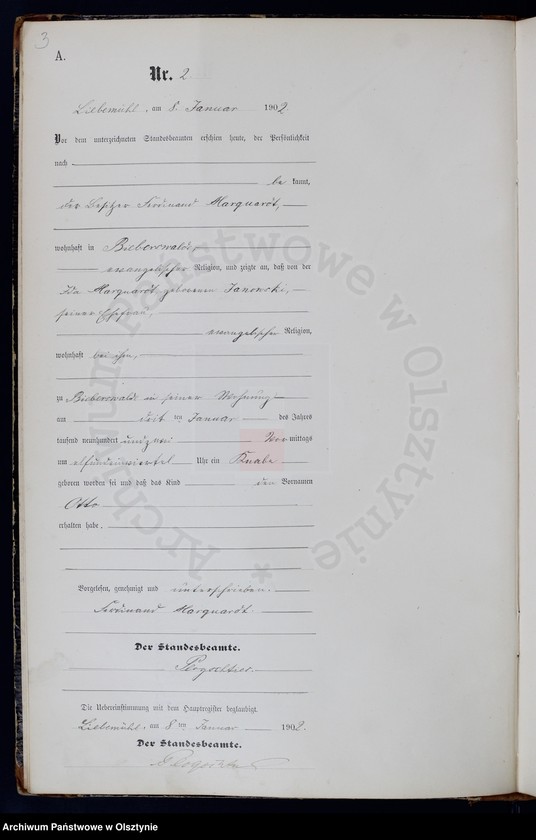 3
A.
Nr. 2
Liebemühl, am 8. Januar 1902
Vor dem unterzeichneten Standesbeamten erschien heute, der Persönlichkeit
nach
be kannt,
der Besitzer Ferdinand Marquardt,
wohnhaft in Bieberswalde,
evangelischer Religion, und zeigte an, daß von der
Ida Marquardt geborenen Janowski,
seiner Ehefrau,
evangelischer Religion,
wohnhaft bei ihm,
zu Bieberswalde in seiner Wohnung
am dritten Januar des Jahres
tausend neunhundert und zwei Vor mittags
um Uhr ein Knabe
geboren worden sei und daß das Kind den Vornamen
Otto
erhalten habe.
Vorgelesen, genehmigt und unterschrieben.
Ferdinand Marquardt
Der Standesbeamte.
Die Uebereinstimmung mit dem Hauptregister beglaubigt.
Liebemühl, am 8ten Januar 1902.
Der Standesbeamte.
Archiwum Państwowe w Olsztynie *
Archiwum Państwowe w Olsztynie